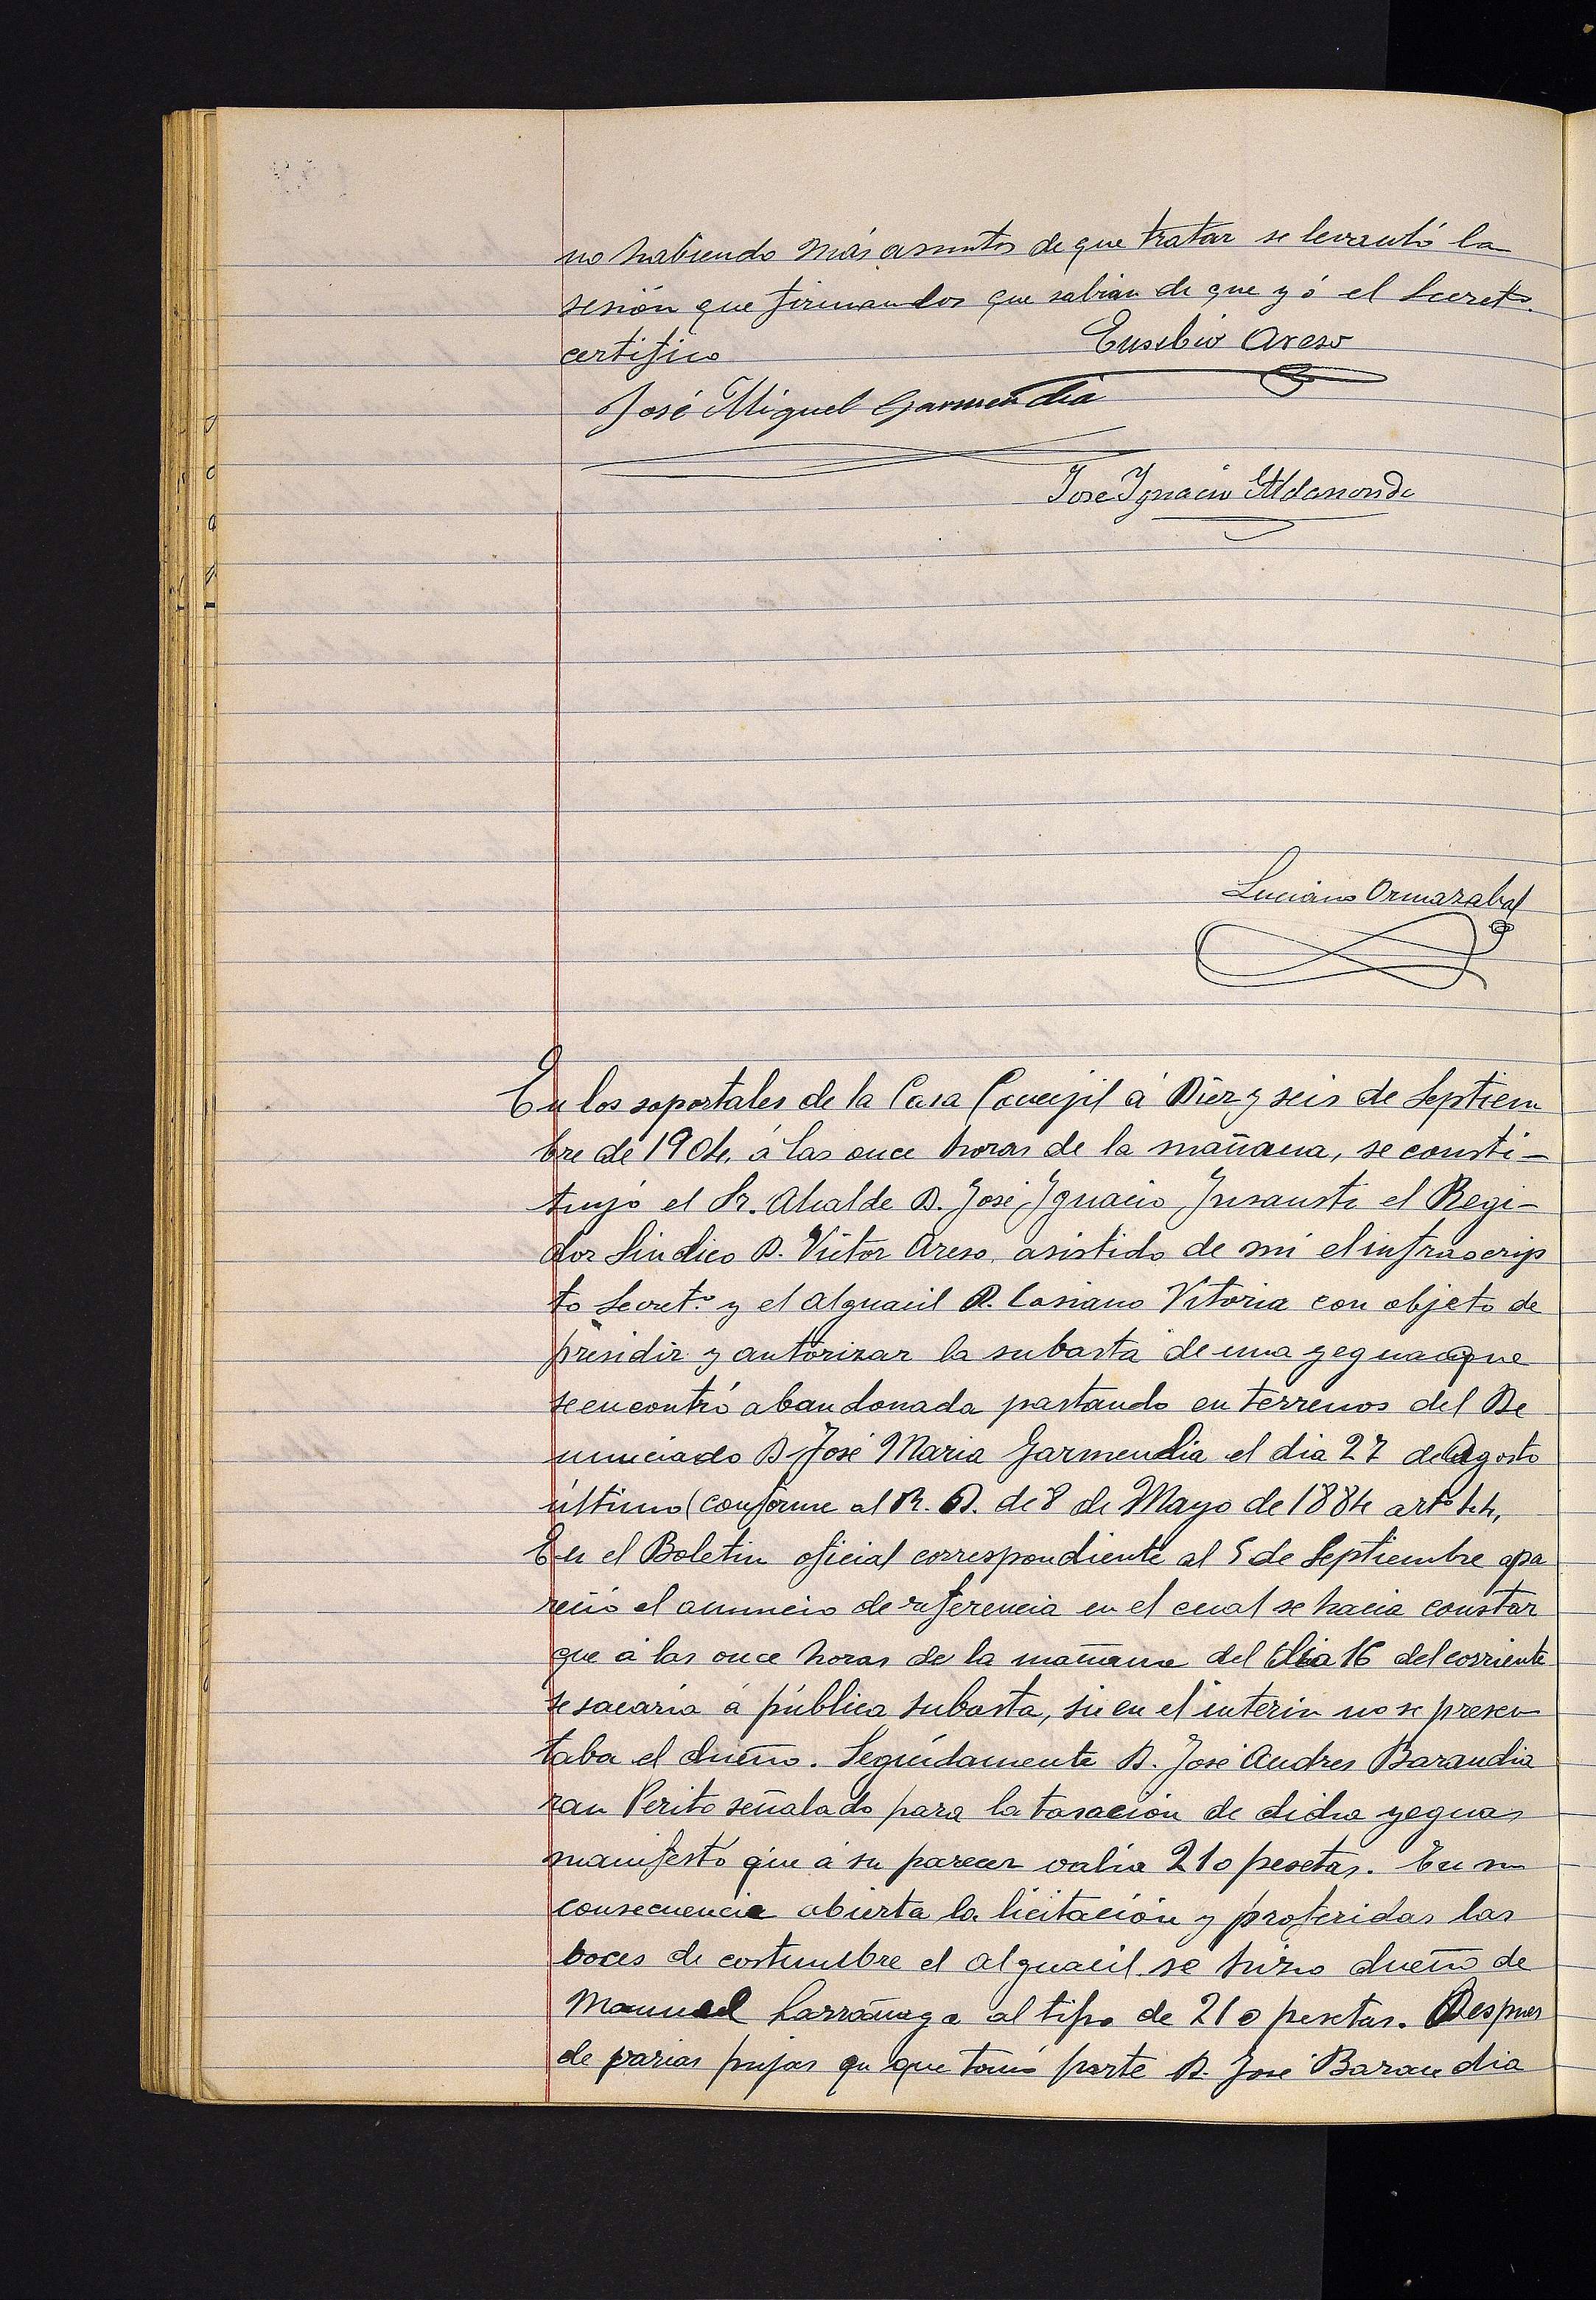 no habiendo más asuntos de que tratar se levantó la
sesión que firman los que sabian de que yó el Secret.º
certifico
Eusebio Areso
José Miguel Garmendia
Jose Ignacio Aldasoro
Luciano Ormazabal
En los soportales de la Casa Concejil á Diez y seis de Septiem
bre de 1904, á las once horas de la mañana, se consti-
tuyó el Sr. Alcalde D. José Ignacio Insausti el Regi-
dor Sindico D. Victor Areso, asistido de mi el infrascrip
to Secret.º y el Alguacil D. Casiano Vitoria con objeto de
presidir y autorizar la subasta de una yegua que
se encontró abandonada pastando en terrenos del De
nunciado D. José Maria Garmendia el dia 27 de Agosto
último (conforme al R. D. de 8 de Mayo de 1884 artº 44,
En el Boletin oficial correspondiente al 5 de Septiembre apa
reció el anuncio de referencia en el cual se hacia constar
que á las once horas de la mañana del dia 16 del corriente
se sacaria á pública subasta, si en el interin no se presen
taba el dueño. Seguidamente D. José Andres Barandia
ran Perito señalado para la tasación de dicha yegua,
manifestó que á su parecer valia 210 pesetas. En su
consecuencia abierta la licitación y proferidas las
boces de costumbre el alguacil se hizo dueño de
Manuel Larrañaga al tipo de 210 pesetas. Despues
de varias pujas en que tomó parte D. José Barandia